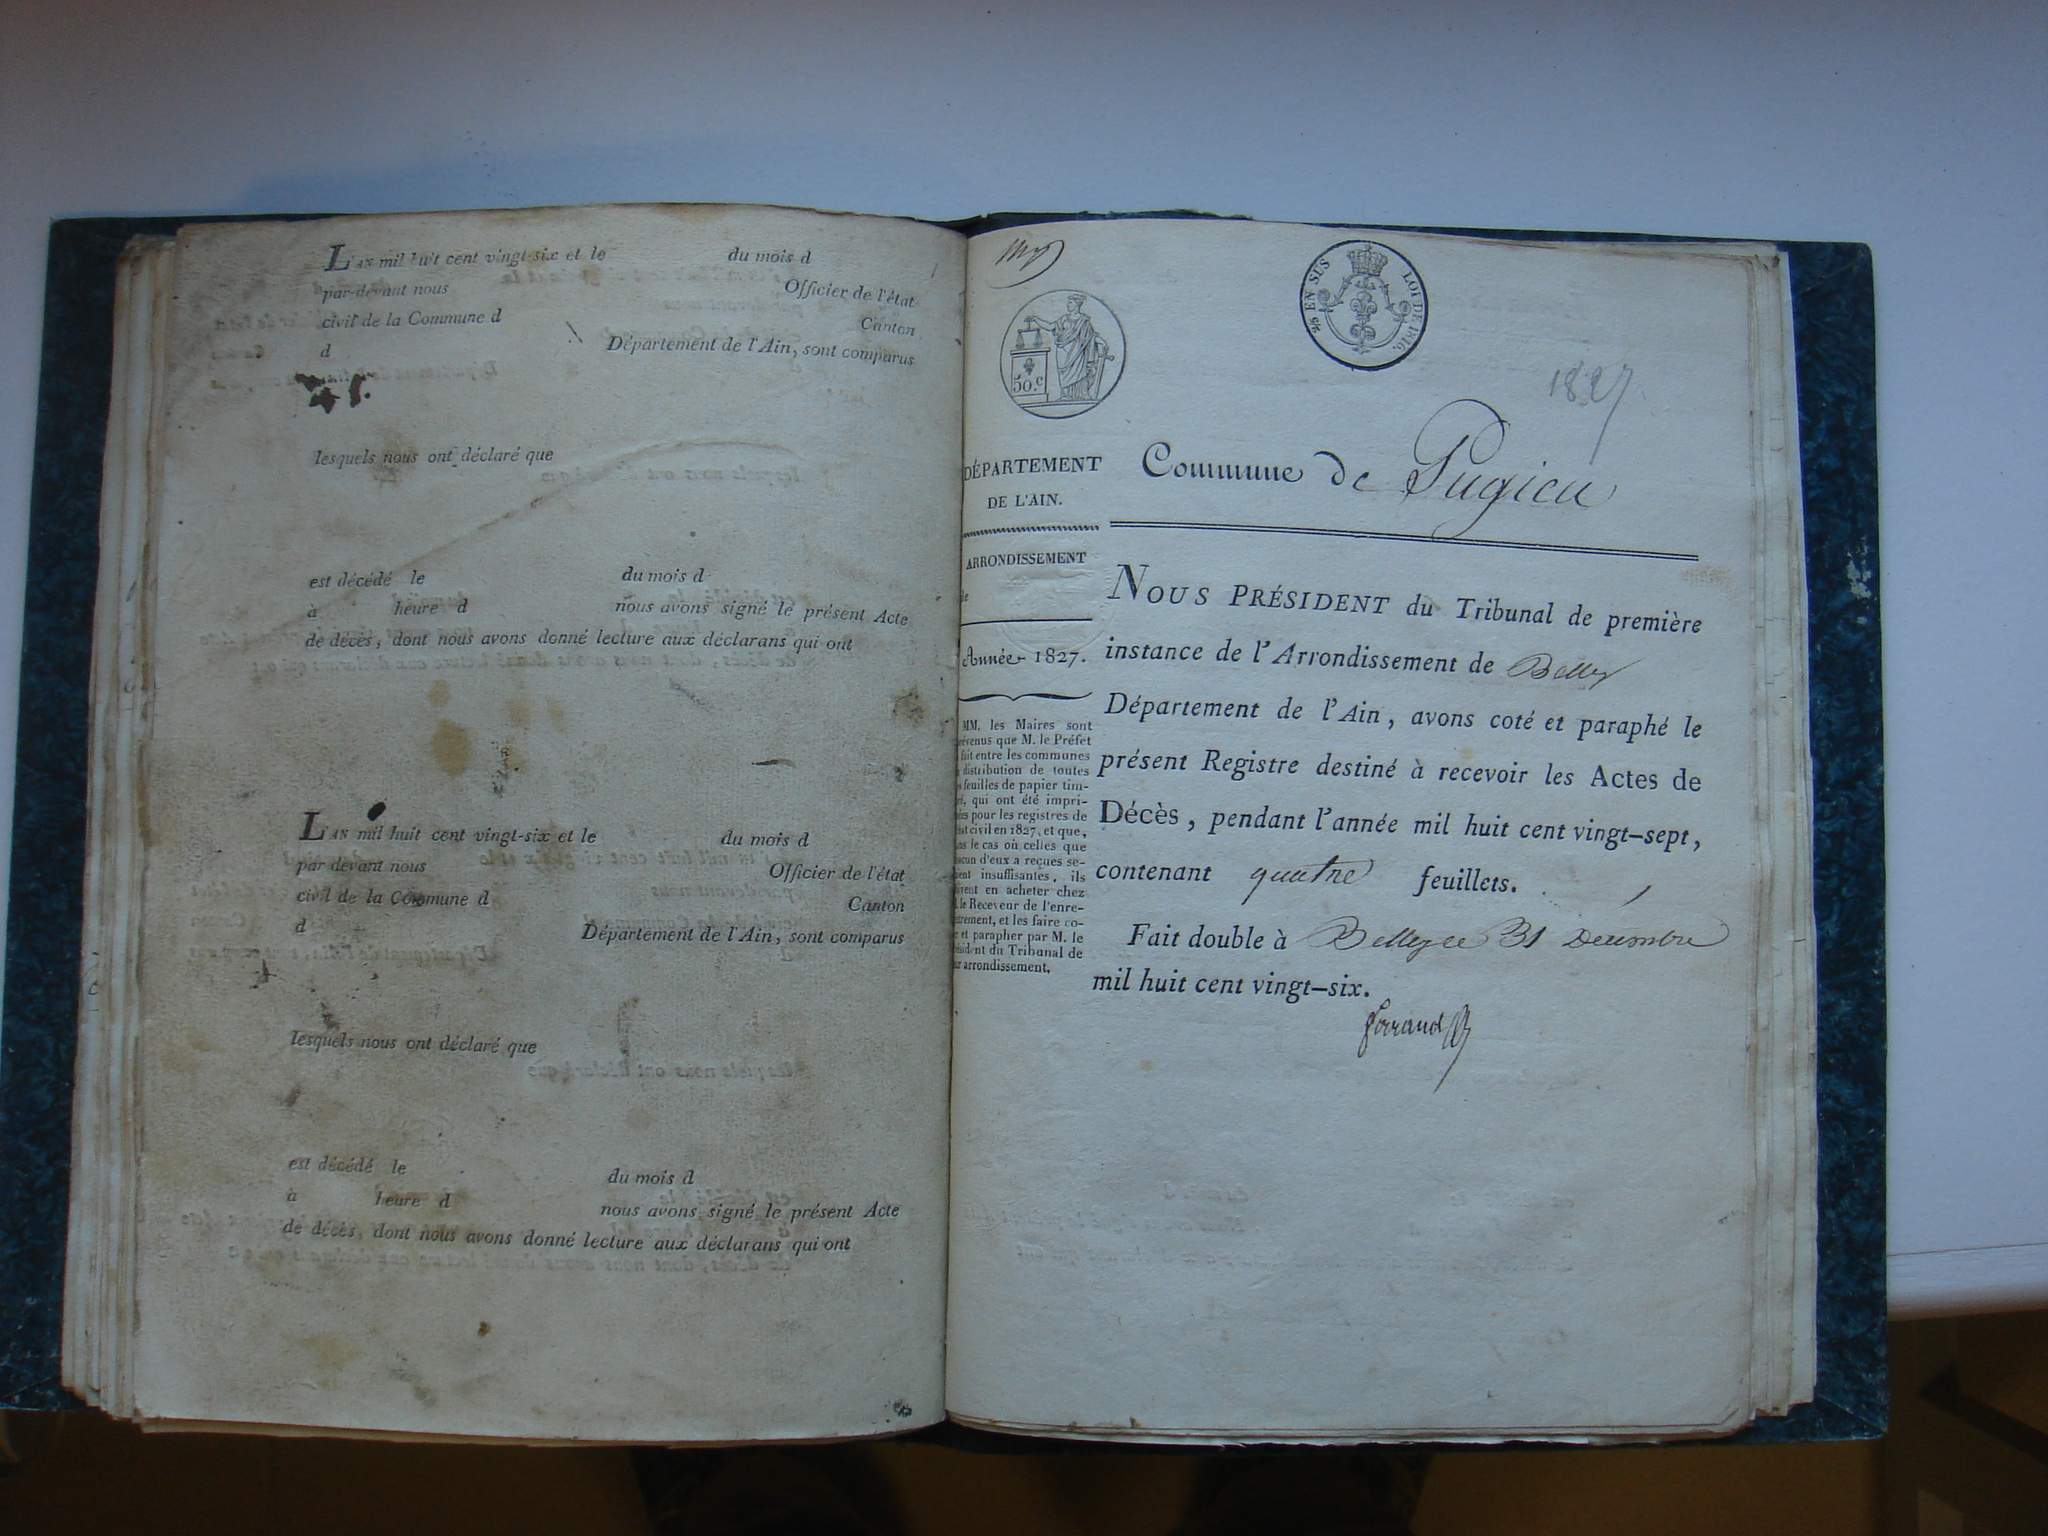 L'AN mil huit cent vingt-six et le du mois d
par-devant nous Officier de l'état
civil de la Commune d Canton
d Département de l'Ain, sont comparus
lesquels nous ont déclaré que
est décédé le du mois d
à heure d nous avons signé le présent Acte
de décès, dont nous avons donné lecture aux déclarans qui ont
L'AN mil huit cent vingt-six et le du mois d
par devant nous Officier de l'état
civil de la Commune d Canton
d Département de l'Ain, sont comparus
lesquels nous ont déclaré que
est décédé le du mois d
à heure d nous avons signé le présent Acte
de décès, dont nous avons donné lecture aux déclarans qui ont
50.c
EN SUS LOI DE 1816.
1827
DÉPARTEMENT
DE L'AIN.
ARRONDISSEMENT
de
Année 1827.
MM. les Maires sont
que M. le Préfet
fait entre les communes
distribution de toutes
feuilles de papier tim-
qui ont été impri-
pour les registres de
civil en 1827, et que,
le cas où celles que
d'eux a reçues se-
insuffisantes, ils
en acheter chez
le Receveur de l'enre-
et les faire co-
et parapher par M. le
du Tribunal de
arrondissement.
Commune de Pugieu
NOUS PRÉSIDENT du Tribunal de première
instance de l'Arrondissement de Belley
Département de l'Ain, avons coté et paraphé le
présent Registre destiné à recevoir les Actes de
Décès, pendant l'année mil huit cent vingt-sept,
contenant quatre feuillets.
Fait double à Belley ce 31 Decembre
mil huit cent vingt-six.